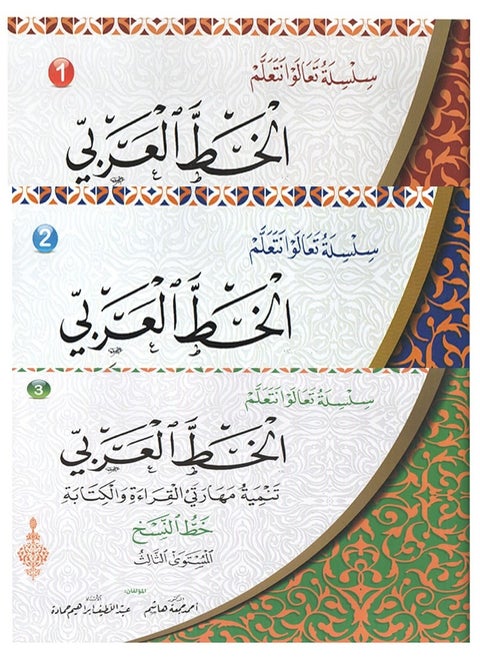 سِلْسِلَةُ تَعَالَوْا نَتَعَلَّمْ
1
الخَطَّ الْعَرَبِيّ
سِلْسِلَةُ تَعَالَوْا نَتَعَلَّمْ
2
الخَطَّ الْعَرَبِيّ
سِلْسِلَةُ تَعَالَوْا نَتَعَلَّمْ
3
الخَطَّ الْعَرَبِيّ
تَنْمِيَةُ مَهَارَتَيِ الْقِرَاءَةِ وَالْكِتَابَةِ
خَطُّ النَّسْخِ
المُسْتَوَى الثَّالِثُ
المؤلفان:
أحمد جمعة هاشم عبد اللطيف إبراهيم حمادة